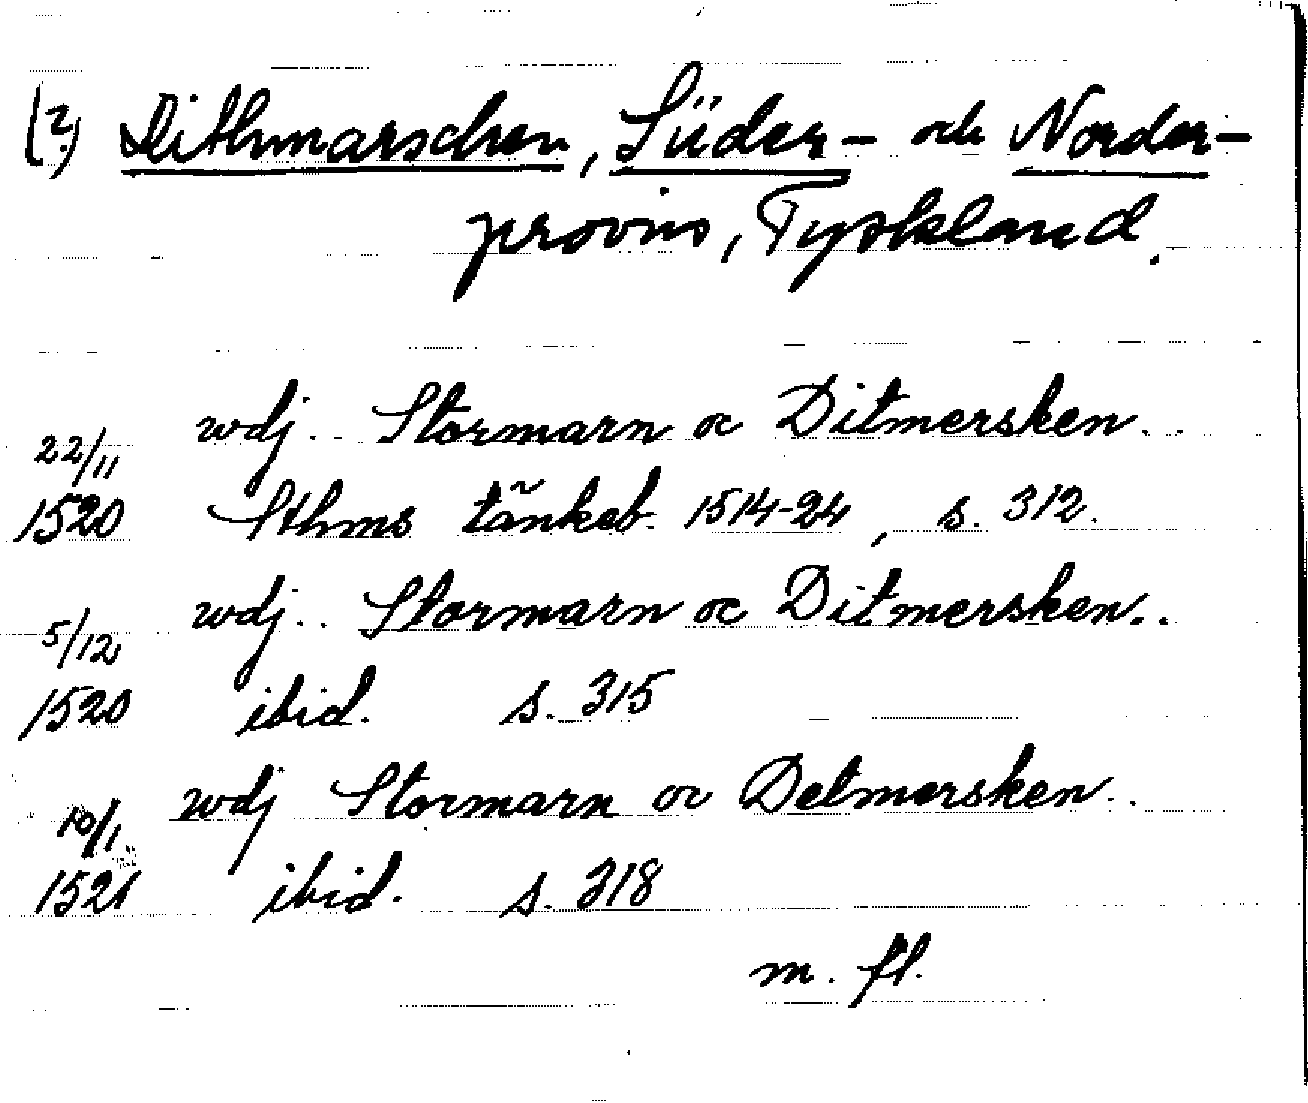 (?) Dithmarschen, Süder- och Norder-
provins, Tyskland.
22/11 wdj.. Stormarn oc Ditmersken..
1520 Sthms tänkeb. 1514-24, s. 312.
5/12 wdj.. Stormarn oc Ditmersken..
1520 ibid. s. 315
10/1 wdj Stormarn oc Detmersken..
1521 ibid. s. 318
m. fl.